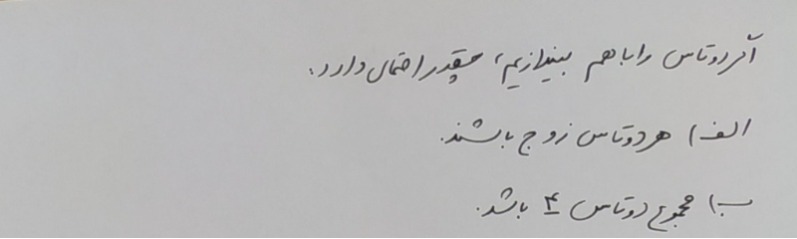 اگر دو تاس را با هم بیندازیم، چقدر احتمال دارد.
الف) هر دو تاس زوج باشند.
ب) مجموع دو تاس ۴ باشد.